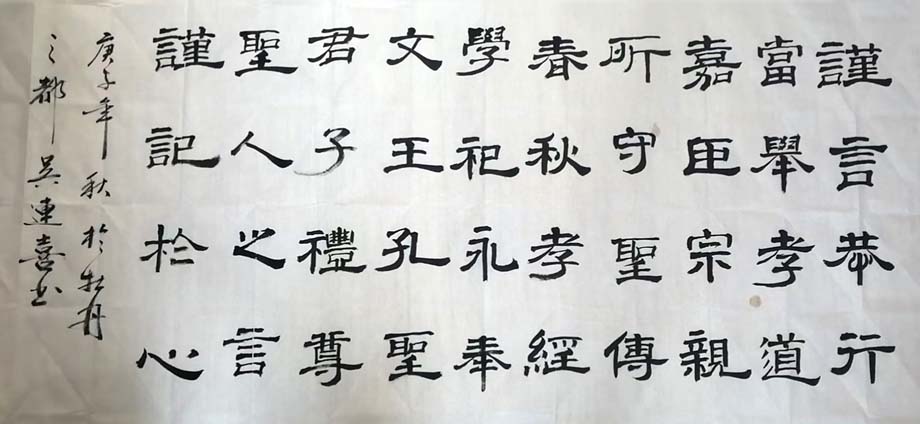 謹言恭行
當舉孝道
嘉臣宗親
所守聖傳
春秋孝經
學祀永奉
文王孔聖
君子禮尊
聖人之言
謹記於心
庚子年秋於牡丹
之都吴連喜书